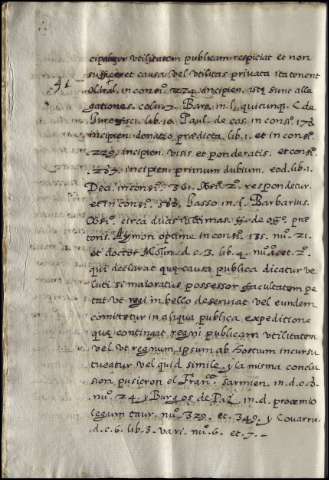 cipaliter utilitatem publicam respiciat et non
91 sufficeret causa vel utilitas privata ita tenent
Oldral. in consº. 224. incipien. ista sunt alle
gationes. colum. 2. Baro. in l. quicunque. C. de
fisci. lib. 10. Paul. de cas. in consº. 173.
incipien. donatio prædicta. lib. 1. et in consº.
229. incipien. visis et ponderatis. et consº.
267. incipien. primum dubium. eod. lib. 1.
Deci. in consº. 361. 2. respondetur.
et in consº. 588. Iasso in l. Barbarius.
circa duas ultimas. de offº. præ
toris. Aymon optime in consº. 135. nuº. 21.
et doctor Molin. d. c. 3. lib. 4. nuº. et 2º.
qui declarat quæ causa publica dicatur ve
luti si maioratus possessor facultatem pe
tat ut regi in bello deserviat vel eundem
comitetur in aliqua publica expeditione
quæ contingat regni publicam utilitatem
vel ut regnum ipsum ab hostium incursu
tueatur vel quid simile, y la misma conclu
sion pusieron el Franº. Sarmien. in. d. c. 3.
nuº. 24 y Burgos de Paz in. d. proemio
legum taur. nuº. 379. et. 349. y Covarru.
d. c. 6. lib. 3. vari. nuº. 6. et. 7. -